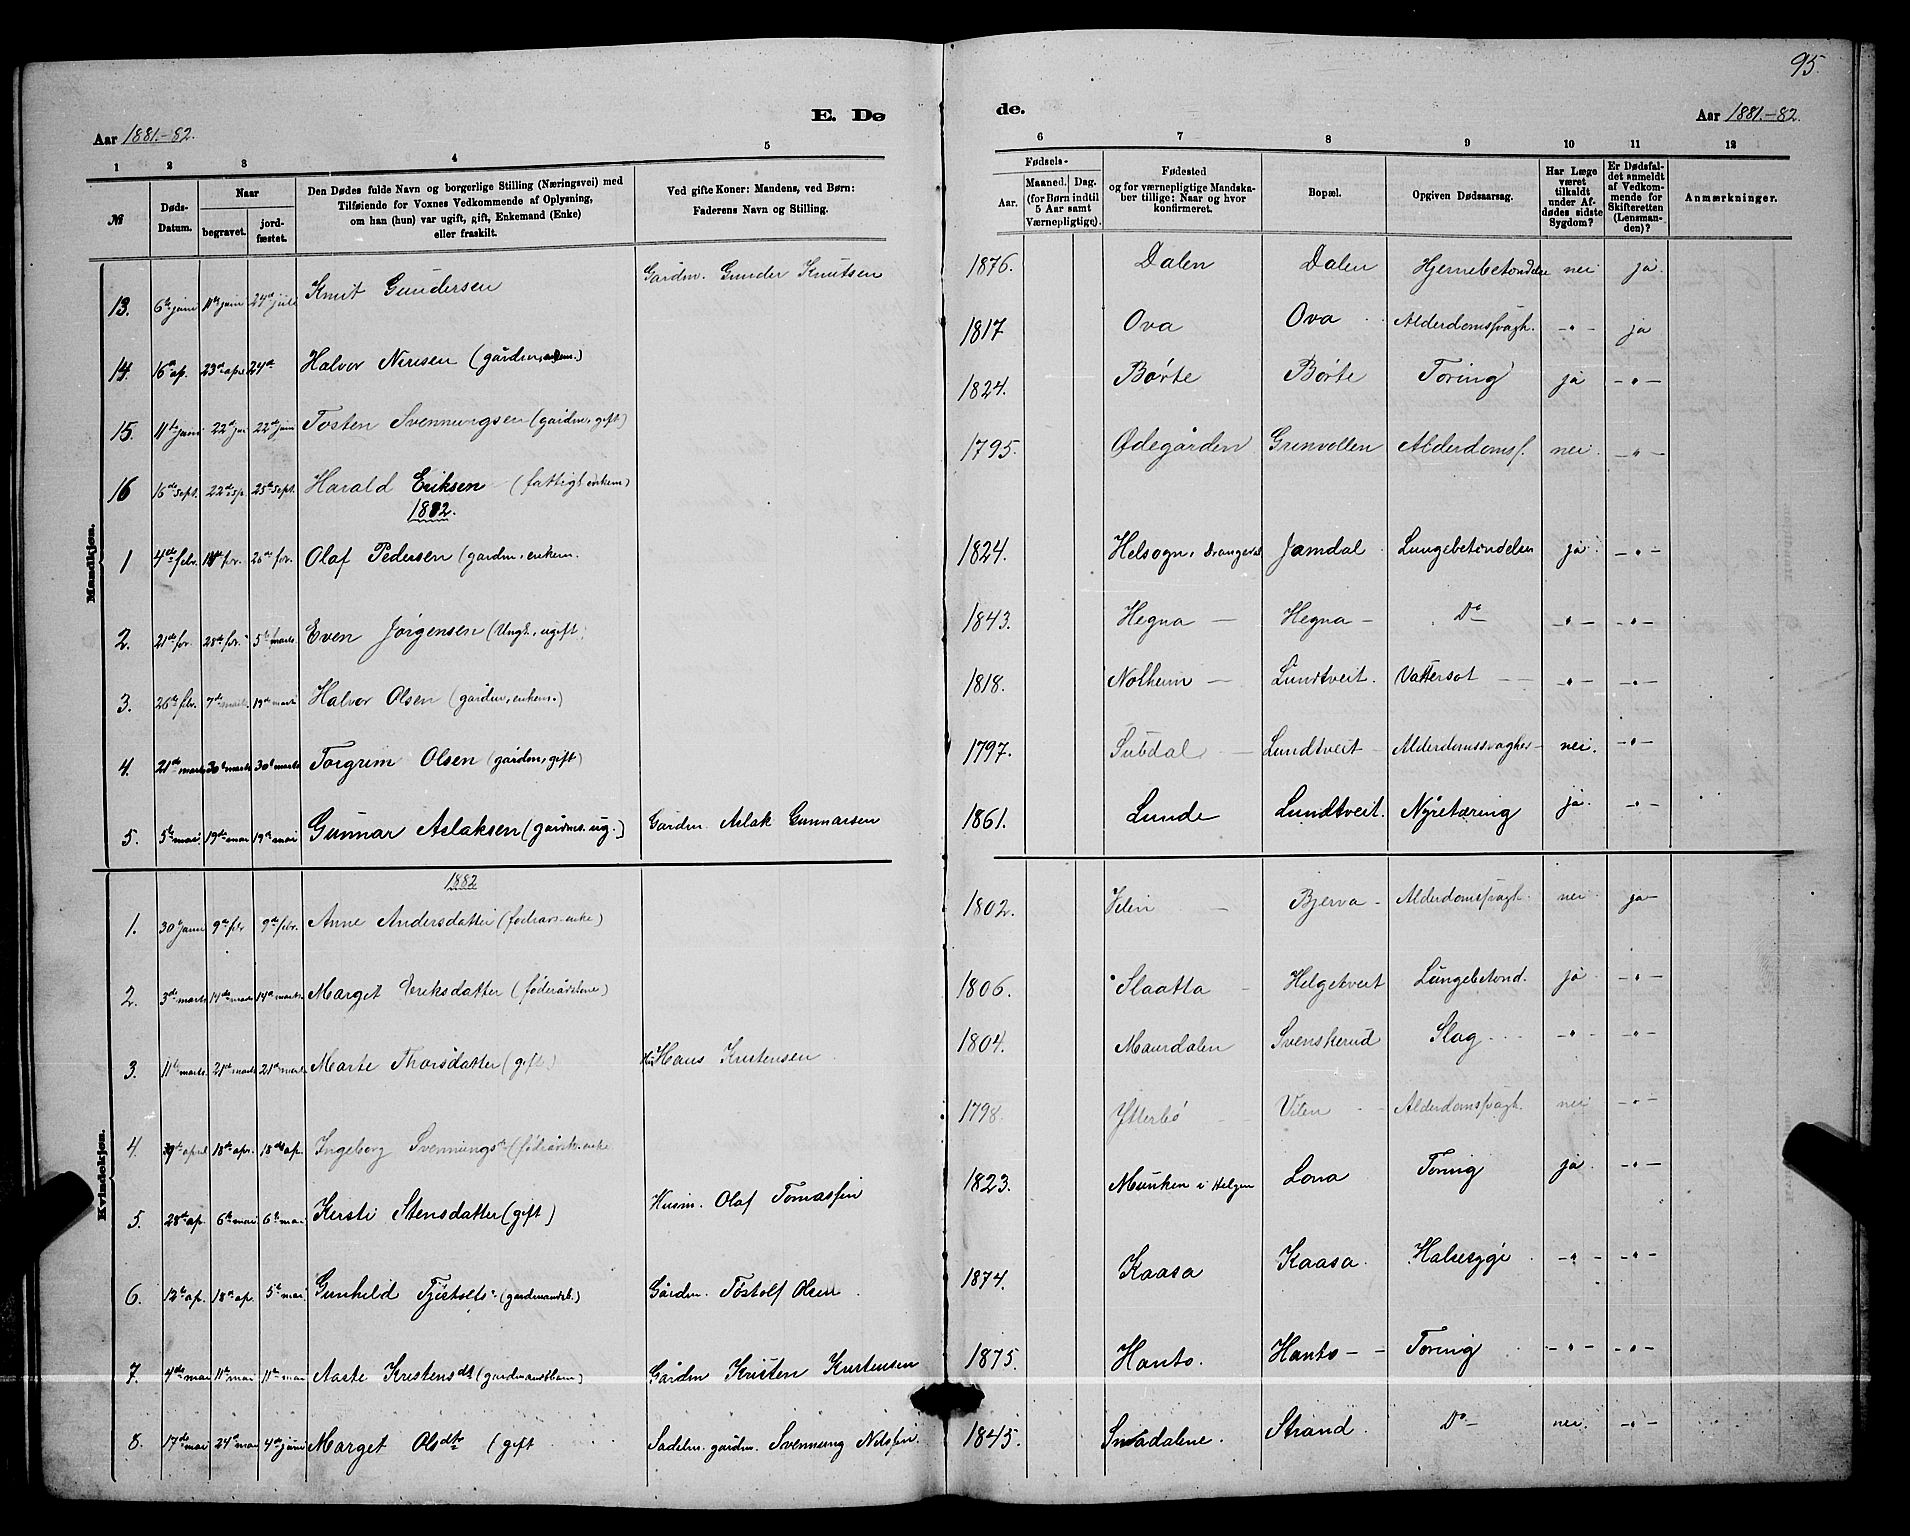 95
E. Dø de.
Aar 1881.-82. Aar 1881.-82.
1 2 3 4 5 6 7 8 9 10 11 12
№
Døds-Datum.
Naar
begravet.
jord-fæstet.
Den Dødes fulde Navn og borgerlige Stilling (Næringsvei) med
Tilføiende for Voxnes Vedkommende af Oplysning,
om han (hun) var ugift, gift, Enkemand (Enke)
eller fraskilt.
Ved gifte Koner: Mandens, ved Børn:
Faderens Navn og Stilling.
Fødsels-
Aar.
Maaned. Dag.
(for Børn indtil
5 Aar samt
Værnepligtige).
Fødested
og for værnepligtige Mandska-
ber tillige: Naar og hvor
konfirmeret.
Bopæl.
Opgiven Dødsaarsag.
Har Læge
været
tilkaldt
under Af-
dødes sidste
Sygdom?
Er Dødsfal-
det anmeldt
af Vedkom-
mende for
Skifteretten
(Lensman-
den)?
Anmærkninger.
Mandkjøn.
13. 6te juni 11te juni 24de juli Knut Gundersen Gardm. Gunder Knutsen 1876. Dalen Dalen Hjernebetændelse nei ja
14. 16de ap. 23de apr. 24de Halvor Nirisen (gårdm, enkem.) 1817 Ova Ova Alderdomssvagh. -"- ja
15. 11te juni 22de jun 22de juni Tosten Svennungsen (gardm, gift) 1824. Børte Børte Toring ja -"-
16 16de sept. 22de sep. 25de sept. Harald Eriksen (fattigl. enkem) 1795. Ødegården Grenvollen Alderdomsf. nei. -"-
1882.
1 4de febr. febr. 26de febr. Olaf Pedersen (gardm, enkem. 1824. Helsogn i Drangedal Jamdal Lungebetændelse ja -"-
2. 21de febr. 28de febr. 5te marts Even Jørgensen (Ungk., ugift) 1843. Hegna Hegna Do -"- -"-
3. 26de febr. 7de marts 19de marts Halvor Olsen (gårdm, enkem.) 1818. Nolheim Lundtveit. Vattersot -"- -"-
4. 21de marts 30te marts 30te marts Torgrim Olsen (gårdm, gift) 1797. Subdal Lundtveit Alderdomssvaghed nei. -"-
5. 5te mai 19de mai 19de mai Gunnar Aslaksen (gardms. ug.) Gardm. Aslak Gunnarsen 1861. Lunde Lundtveit. Nyretæring ja -"-
Kvindekjøn.
1882
1. 30 janu 9de febr 9de febr. Anne Andersdatter (fodraads-enke) 1802. Vilen Bjerva Alderdomssvagh. nei ja
2. 3de marts 14de marts 14de marts Marget Eriksdatter (føderådskone) 1806. Slaatta Helgetveit Lungebetænd. ja -"-
3. 11te marts 21de marts 21de marts Marte Thorsdatter (gift) Hus Hans Kristensen 1804. Maurdalen Svenskerud Slag -"- -"-
4. april 18de apr. 18de ap. Ingeborg Svennungsdtr (fødrådsk. enke 1798. Ytterbø Vilen Alderdomssvagh. nei -"-
5. 28de ap. 6te mai 6te mai Kersti Stensdatter (gift) Husm. Olaf Tomassen 1823. Munken i Helgen Lona Toring ja -"-
6. 12te ap. 18de ap. 5te mai Gunhild Tjøstolfsd. (gardmandsb.) Gårdm. Tostolf Olsen 1874. Kaasa Kaasa Halssyge -"- -"-
7. 4de mai 11te mai 11te mai Aaste Kristensdt (gardmandsbarn) Gårdm Kristen Kristensen 1875. Hanto. Hanto Toring -"- -"-
8. 17de mai 24de mai 4de juni Marget Olsdtr (gift Sadelm. gårdm. Svennung Nilssen 1845. Snadalene. Strand Do nei -"-